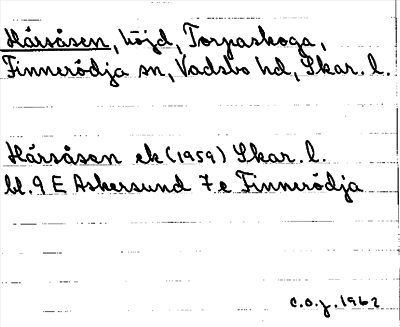 Hårsåsen, höjd, Torpaskoga,
Finnerödja sn, Vadsbo hd, Skar. l.
Hårsåsen ek (1959) Skar. l.
bl. 9 E Askersund 7 e Finnerödja
C.O.J. 1962